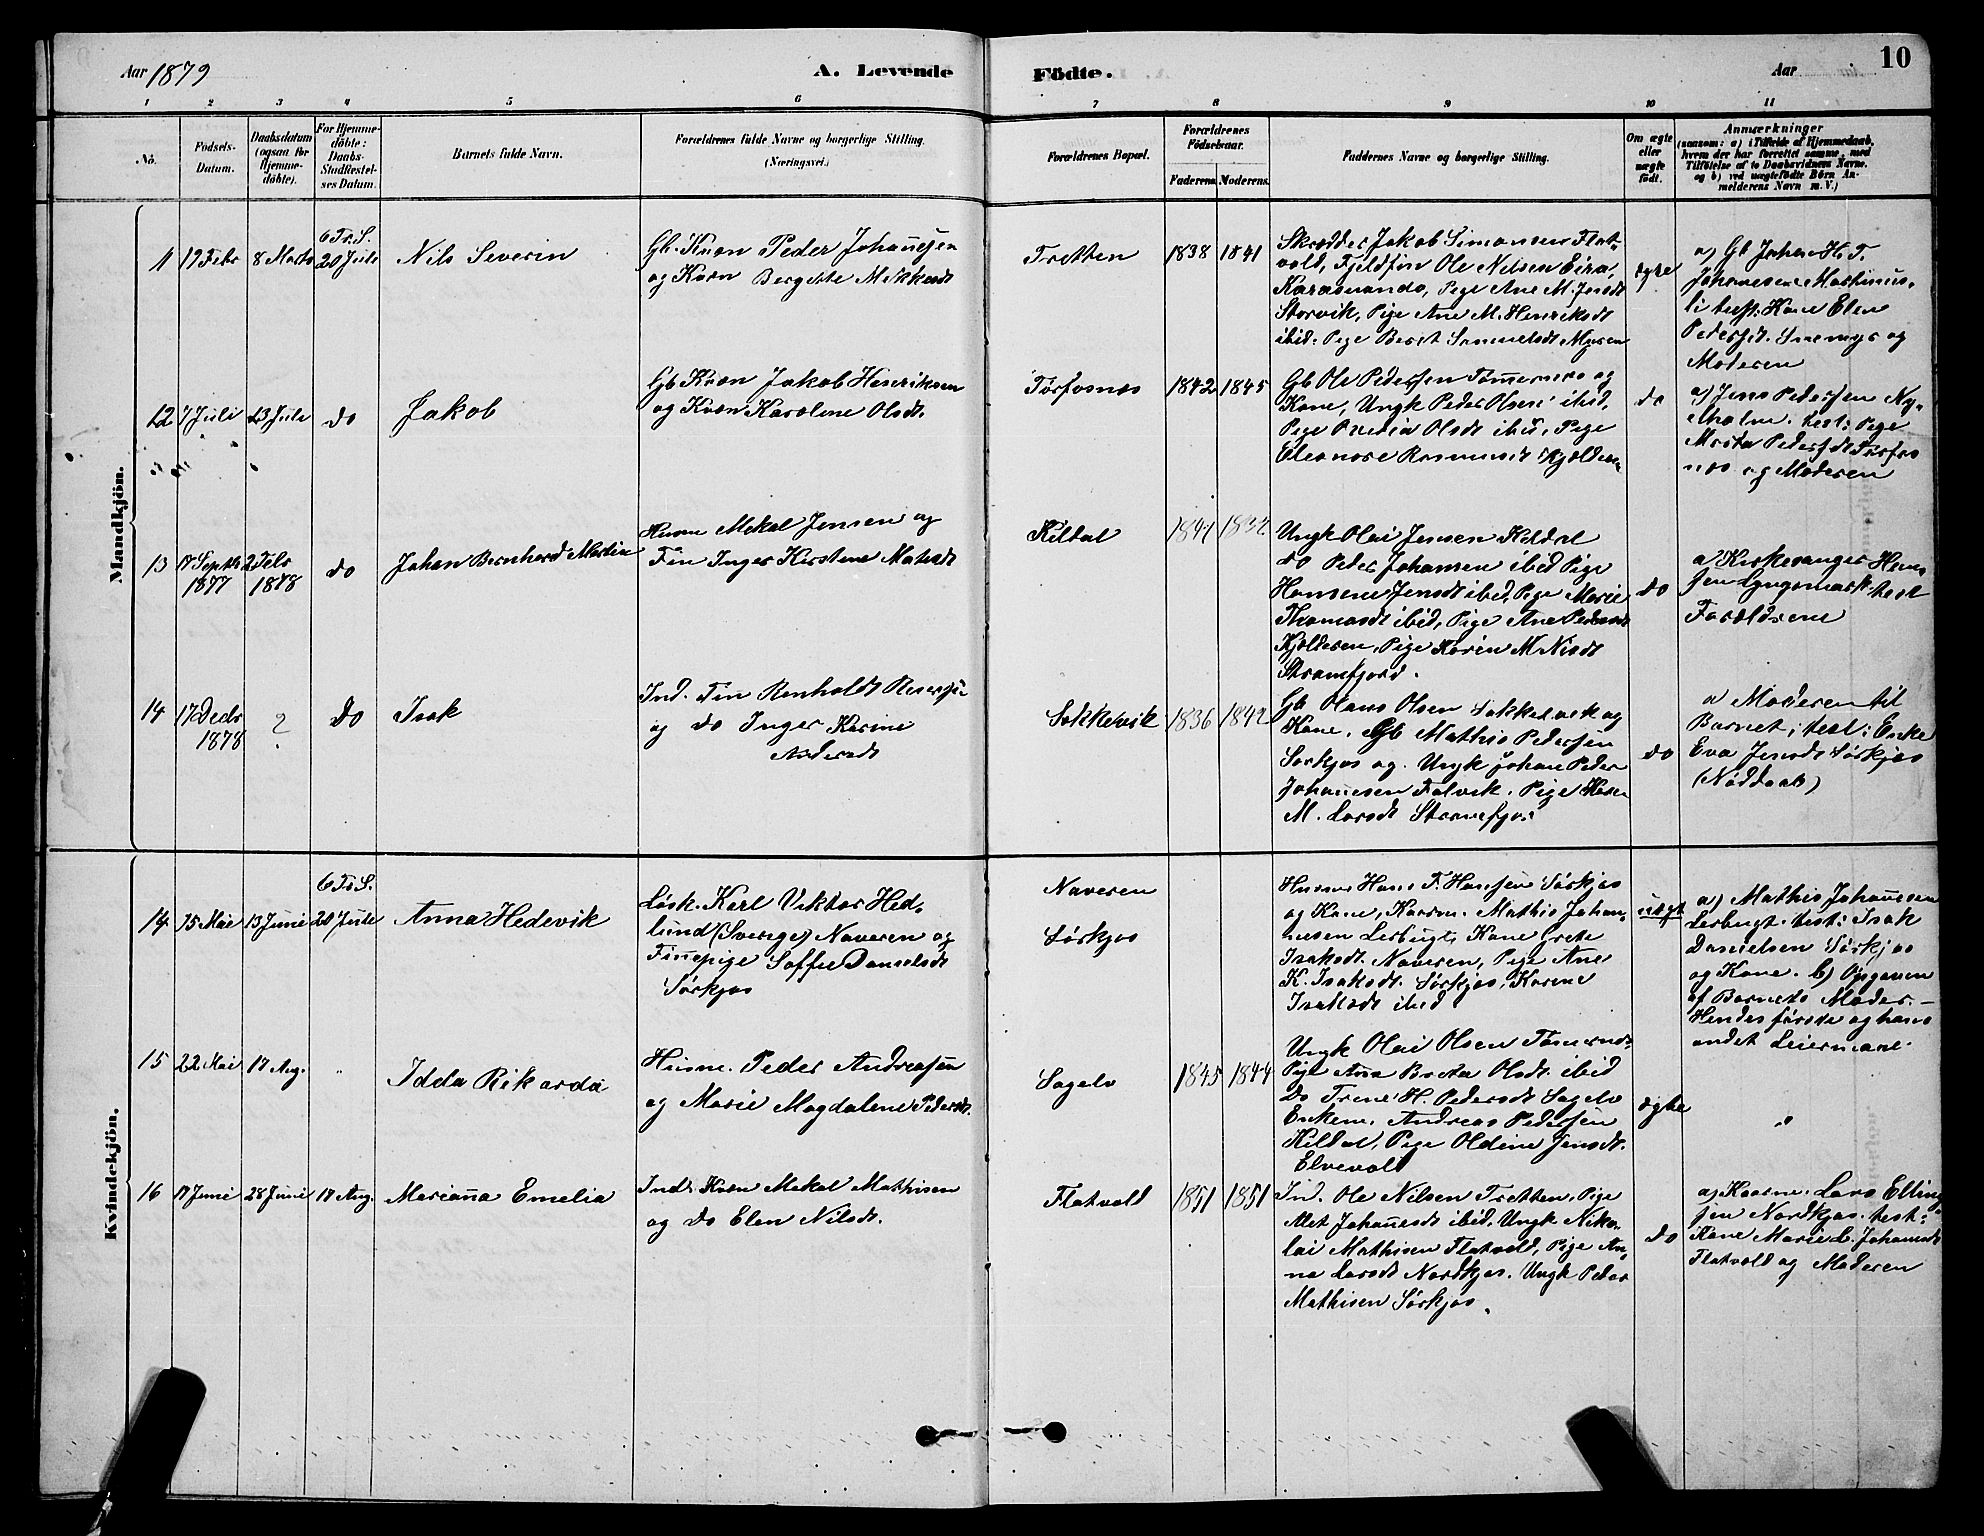 Aar 1879
A. Levende
Födte.
Aar
10
1 2 3 4 5 6 7 8 9 10 11
No.
Födsels-
Datum.
Daabsdatum
(ogsaa for
Hjemme-
döbte).
For Hjemme-
döbte:
Daabs-
Stadfæstel-
ses Datum.
Barnets fulde Navn.
Forældrenes fulde Navne og borgerlige Stilling.
(Næringsvei.)
Forældrenes Bopæl.
Forældrenes
Födselsaar.
Faderens.
Moderens.
Faddernes Navne og borgerlige Stilling.
Om ægte
eller
uægte
födt.
Anmærkninger
(saasom: a) i Tilfælde af Hjemmedaab,
hvem der har forrettet samme, med
Tilföielse af to Daabsvidners Navne,
og b) ved uægtefödte Börn An-
melderens Navn m. V.)
Mandkjön.
11 17 Febr 8 Marts
6 Tr. S.
20 Juli
Nils Severin
Gb. Kvæn Peder Johannesen
og Kvæn Bergitte Mikkelsdt
Tretten
1838 1841
Skrædder Jakob Simonsen Flat-
vold, Fjeldfin Ole Nilsen Eira,
Karasuando, Pige Ane M. Jensdt
Storvik, Pige Ane M. Henriksdt
ibid. Pige Berit Samuelsdt Myren
ægte
a) Gb Johan H. F.
Johannesen Mathinus-
li test: Kone Elen
Pedersdt. Snemyr og
Moderen
12 7 Juli 23 Juli do
Jakob
Gb Kvæn Jakob Henriksen
og Kvæn Karoline Olsdt.
Torfosnæs
1842 1845
Gb Ole Pedersen Tømernes og
Kone, Ungk Peder Olsen ibid.
Pige Ovedia Olsdt ibid, Pige
Eleonore Rasmusdt Kjelderen
do
a) Jens Pedersen Ny-
eholm. test: Pige
Marta Pedersdt Torfos
næs og Moderen
13 17 Septb. 2 Febr
1877 1878
do
Johan Bernhard Martin
Husm Mikal Jensen og
Fin Inger Kirstine Matisdt
Kildal
1841 1832
Ungk Olai Jensen Kildal
do Peder Johansen ibid Pige
Hansine Jensdt ibid, Pige Marie
Thomasdt ibid, Pige Ane Pedersdt
Kjelderen, Pige Karen M. Nilsdt
Straumfjord.
do
a) Kirkesanger Hen-
sen Lyngsmark test
Forældrene
14 17 Decbr ?
1878
do
Isak
Ind. Fin Renholdt
og do Inger Karine
Andersdt
Sokkelvik
1836 1842
Gb Olaus Olsen Sokkelvik og
Kone, Gb Mathis Pedersen
Sørkjos og Ungk Johan Peder
Johannesen Falvik. Pige
M. Larsdt Straumfjor.
do
a Moderen til
Barnet; test: Enke
Eva Jensdt Sørkjos
(Nøddaab)
Kvindekjön.
14 15 Mai 13 Juni
6 Tr. S.
20 Juli
Anna Hedevik
Løsk. Karl Viktor Hed-
lund (Sverige) Naveren og
Finnepige Soffie Danielsdt
Sørkjos
Naveren
Sørkjos
Husm Hans F. Hansen Sørkjos
og Kone, Kaarm. Mathis Johan-
nesen Lerbugt, Kone Grete
Isaksdt. Naveren, Pige Ane
K. Isaksdt. Sørkjos, Karine
Isaksdt ibid
uægt.
a) Mathis Johannesen
Lerbugt. test: Isak
Danielsen Sørkjos
og Kone. b) Opgaven
af Barnets Moder. -
Hendes første og hans
andet Leiermaal.
15 22 Mai 17 Aug. "
Idda Rikarda
Husm. Peder Andreasen
og Marie Magdalene Pedersdt.
Sagelv
1845 1844
Ungk Olai Olsen Tømernes-
Pige Anna Berta Olsdt. ibid
Do Trine H. Pedersdt Sagelv
Enkem. Andreas Pedersen
Kildal, Pige Oldine Jensdt.
Elvevold
ægte
"
16 17 Juni 28 Juni 17 Aug.
Marianna Emelia
Ind. Kvæn Mikal Mathisen
og Do Elen Nilsdt.
Flatvold
1851 1851
Ind. Ole Nilsen Tretten, Pige
Alet Johannesdt ibid. Ungk Niko-
lai Mathisen Flatvold, Pige An-
na Larsdt Nordkjos. Ungk Peder
Mathisen Sørkjos.
do
a) Kaarm. Lars Elling-
sen Nordkjos. test:
Kone Marie L. Johannesdt
Flatvold og Moderen